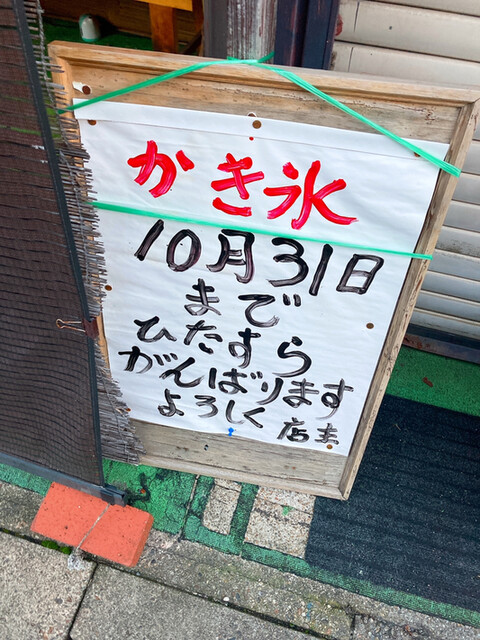 かき氷
10月31日
まで
ひたすら
がんばります
よろしく 店主